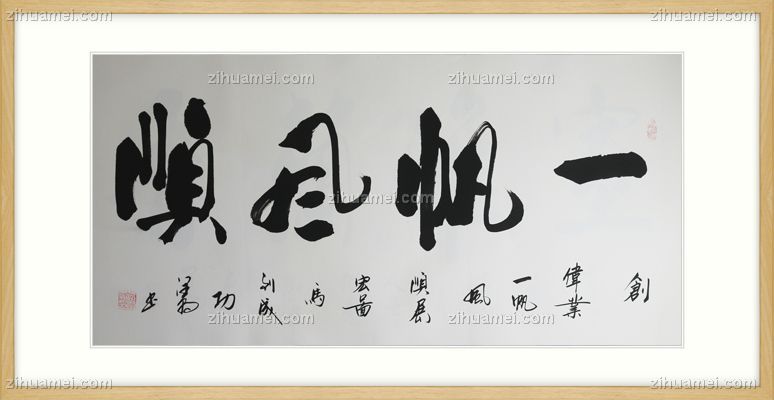 一帆風順
創
偉業
一帆
風
順展
宏圖
馬
到成
功
書
zihuamei.com
zihuamei.com
zihuamei.com
zihuamei.com
zihuamei.com
zihuamei.com
zihuamei.com
zihuamei.com
zihuamei.com
zihuamei.com
zihuamei.com
zihuamei.com
zihuamei.com